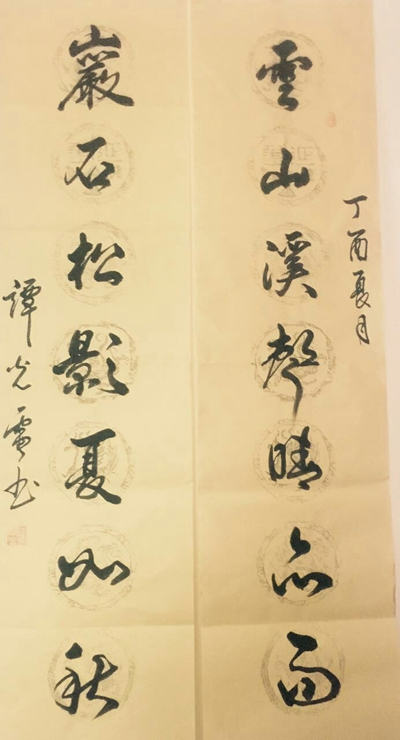 丁酉夏月
雲山溪聲晴亦雨
巖石松影夏如秋
譚光書